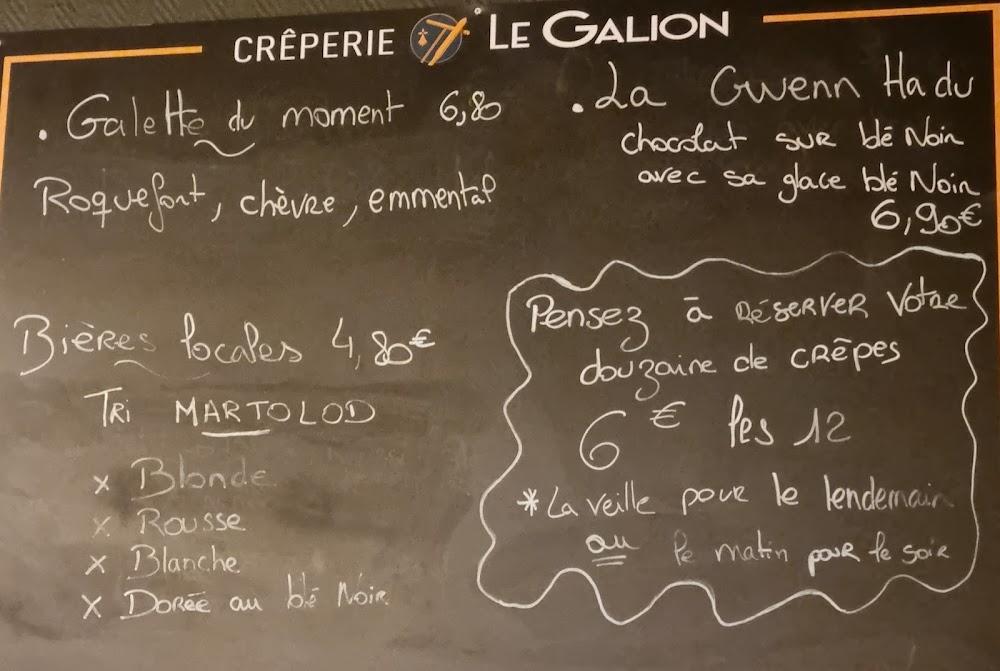 CRÊPERIE LE GALION
. Galette du moment 6,80
Roquefort, chèvre, emmental
. La Gwenn Ha du
chocolat sur blé Noir
avec sa glace blé Noir
6,90€
Bières locales 4,80€
Tri MARTOLOD
x Blonde
x Rousse
x Blanche
x Dorée au blé Noir
Pensez à RÉSERVER Votre
douzaine de crêpes
6€ les 12
*La veille pour le lendemain
ou le matin pour le soir